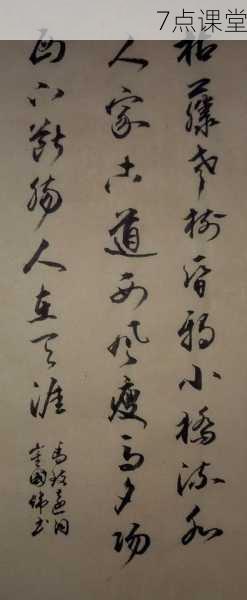 7点课堂
枯藤老树昏鸦小桥流水
人家古道西风瘦马夕阳
西下断肠人在天涯
马致远词
国伟书